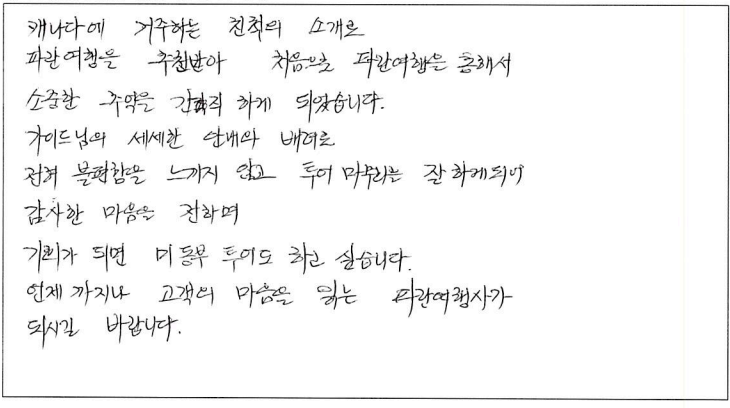 캐나다에 거주하는 친척의 소개로
파란여행을 추천받아 처음으로 파란여행을 통해서
소중한 추억을 간직 하게 되었습니다.
가이드님의 세세한 안내와 배려로
전혀 불편함을 느끼지 않고 투어 마무리는 잘 하게되어
감사한 마음을 전하며
기회가 되면 미동부 투어도 하고 싶습니다.
언제 까지나 고객의 마음을 읽는 파란여행사가
되시길 바랍니다.